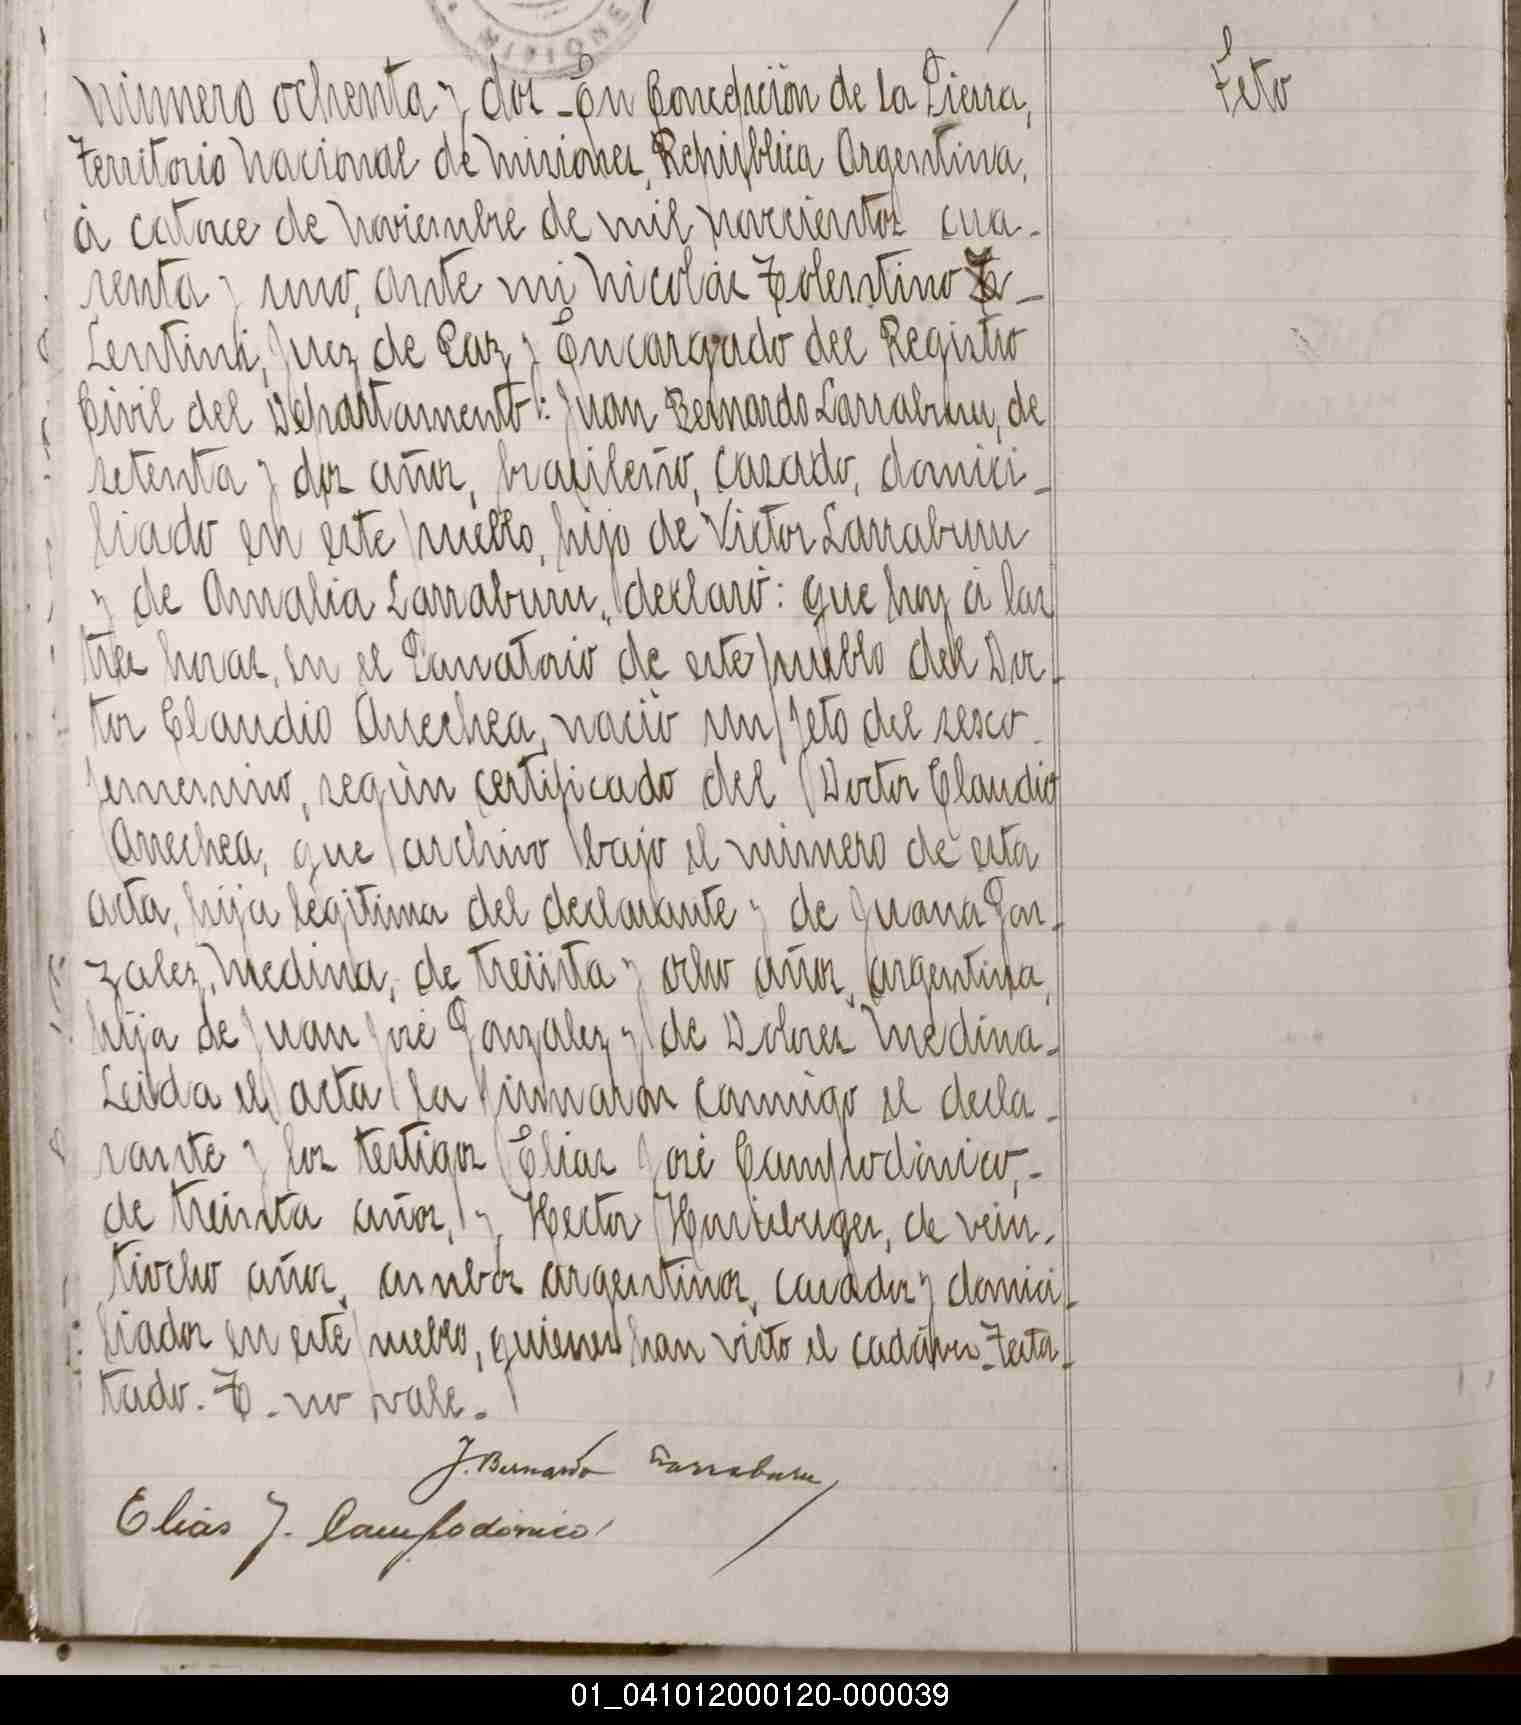 MISIONE
Feto
Número ochenta y dos - En Concepción de la Sierra,
Territorio Nacional de Misiones, República Argentina,
á catorce de Noviembre de mil novecientos cua-
renta y uno, ante mi Nicolás Tolentino To-
Lentini, Juez de Paz y Encargado del Registro
Civil del Departamento: Juan Bernardo Larraburu, de
setenta y dos años, brasileño, casado, domici-
liado en este pueblo, hijo de Victor Larraburu
y de Amalia Larraburu, declaró: que hoy á las
tres horas, en el Sanatorio de este pueblo del Doc-
tor Claudio Arrechea, nació un feto del sexo
femenino, según certificado del Doctor Claudio
Arrechea, que archivo bajo el número de esta
acta, hija legítima del declarante y de Juana Gon-
zalez Medina, de treinta y ocho años, argentina,
hija de Juan José Gonzalez y de Dolores Medina.
Leida el acta la firmaron conmigo el decla-
rante y los testigos Elias José Campodónico,-
de treinta años, y, Hector, de vein-
tiocho años, ambos argentinos, casados y domici-
liados en este pueblo, quienes han visto el cadáver. Testa-
tado. To. no vale.
J. Bernardo Larraburu
Elias J. Campodónico
01_041012000120-000039